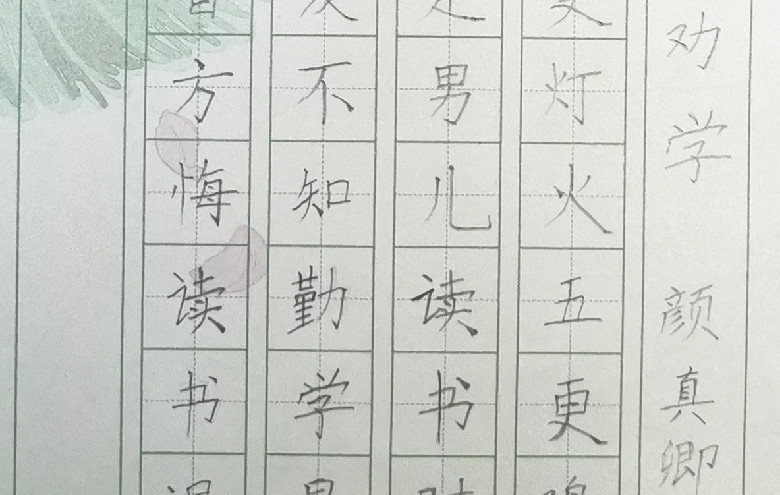 劝学 颜真卿
灯火五更
男儿读书
不知勤学
方悔读书